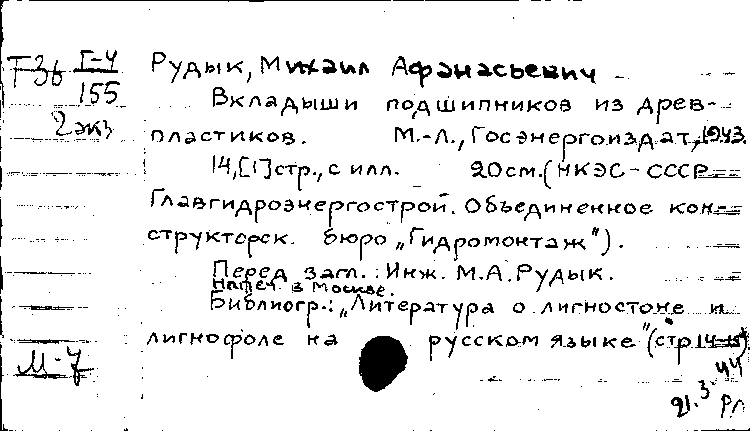 Т36 Г-4
155
2 экз
Рудык, Михаил Афанасьевич
Вкладыши подшипников из древ-
пластиков. М.-Л., Госэнергоиздат, 1943.
14,[1]стр., с илл. 20см. (НКЭС-СССР
Главгидроэнергострой. Объединенное кон-
структорск. бюро „Гидромонтаж").
Перед загл.: Инж. М.А.Рудык.
Напеч. в Москве.
Библиогр.: „Литература о лигностоне и
лигнофоле на русском языке" (стр. 14-15)
М-7
21.3.44
Рл